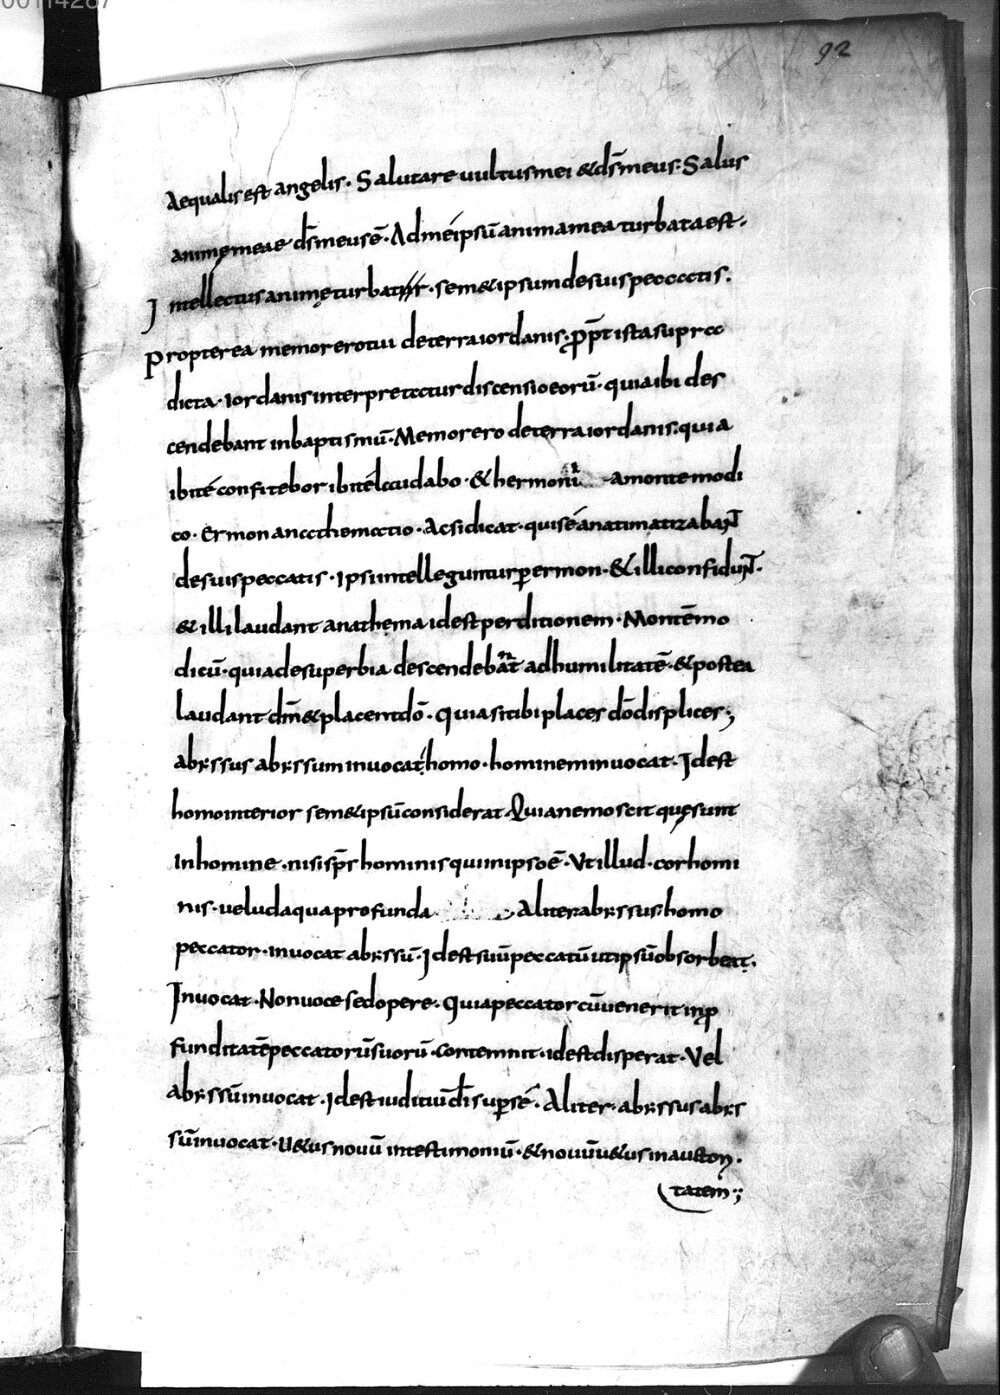 00114287
92
Aequalis est angelis. Salutare uultus mei & dŝ meus. Salus
animę meae dŝ meus ē. Ad me ipsū anima mea turbata est.
Intellectus animę turbatur. sem&ipsum de suis peccatis.
Propterea memor ero tui de terra iordanis. ꝓp̄t ista supra
dicta. Iordanis interpretatur discensio eorū. quia ibi des
cendebant in baptismū. Memor ero de terra iordanis. quia
ibi te confitebor ibi te laudabo. & hermoni a monte modi
co. Ermon anathematio. Ac si dicat. qui se anatimatizabant
de suis peccatis. Ipsi intelleguntur ꝑ ermon. & illi confidunt.
& illi laudant anathema id est perditionem. Montē mo
dicū. quia de superbia descendebant ad humilitatē. & postea
laudant dm̄ & placent dō. Quia si tibi places dō displices;
abyssus abyssum inuocat. homo. hominem inuocat. Id est
homo interior sem&ipsū considerat. Quia nemo scit quę sunt
in homine. nisi sp̄s hominis qui in ipso ē. Vt illud. cor homi
nis. uelud aqua profunda. Aliter abyssus. homo
peccator. inuocat abyssū. Id est suū peccatū ut ipsū obsorbeat.
Inuocat. Non uoce sed opere. Quia peccator cū uenerit in ꝓ
funditatē peccatorū suorū. contemnit. id est disperat. Vel
abyssū inuocat. Id est iuditiū dī super se. Aliter. abyssus abys
sū inuocat. U&us nouū in testimoniū. & nouū u&us in auctori
tatem;